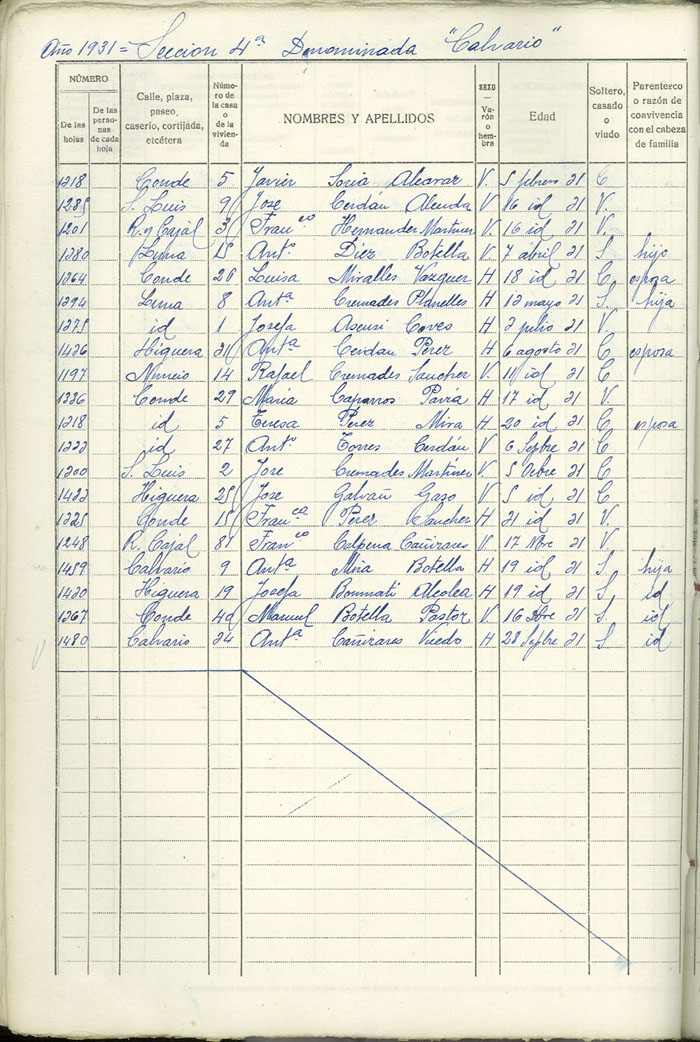 Año 1931 = Sección 4ª Denominada "Calvario"
NÚMERO
De las hojas
De las personas de cada hoja
Calle, plaza, paseo, caserío, cortijada, etcétera
Número de la casa o de la vivienda
NOMBRES Y APELLIDOS
SEXO — Varón o hembra
Edad
Soltero, casado o viudo
Parentesco o razón de convivencia con el cabeza de familia
1218 Conde 5 Javier Soria V. 5 febrero 31 C
1285 S. Luis 9 Jose Cerdán V 16 id 31 V.
1201 R. y Cajal 3 Franco Hernandez Martinez V. 16 id 31 V.
1280 Luna 15 Anto Diez Botella V. 7 abril 31 S hijo
1264 Conde 26 Luisa Miralles Vazquez H 18 id 31 C esposa
1294 Luna 8 Anta Cremades Planelles H 12 mayo 31 S. hija
1275 id 1 Josefa Asensi Coves H 2 julio 31 V.
1426 Higuera 21 Anta Cerdán Pérez H 6 agosto 31 C esposa
1197 14 Rafael Cremades Sanchez V. 11 id 31 C
1236 Conde 29 Maria Caparros H 17 id 31 V.
1218 id 5 Teresa Pérez Mira H 20 id 31 C esposa
1222 id 27 Anto Torres Cerdán V 6 Sepbre 31 C
1200 S. Luis 2 Jose Cremades Martínez V. 5 Octbre 31 C
1422 Higuera 25 Jose Galvañ V 5 id 31 C
1225 Conde 15 Franca Pérez Sanchez H 21 id 31 V.
1248 R. Cajal 81 Franco Calpena Cañizares V 17 Nbre 31 V
1459 Calvario 9 Anta Mira Botella H 19 id 31 S. hija
1420 Higuera 19 Josefa Bonmati Alcolea H 19 id 31 S. id
1267 Conde 40 Manuel Botella Pastor V. 16 31 S. id
1480 Calvario 24 Anta Cañizares H 28 Sepbre 31 S. id